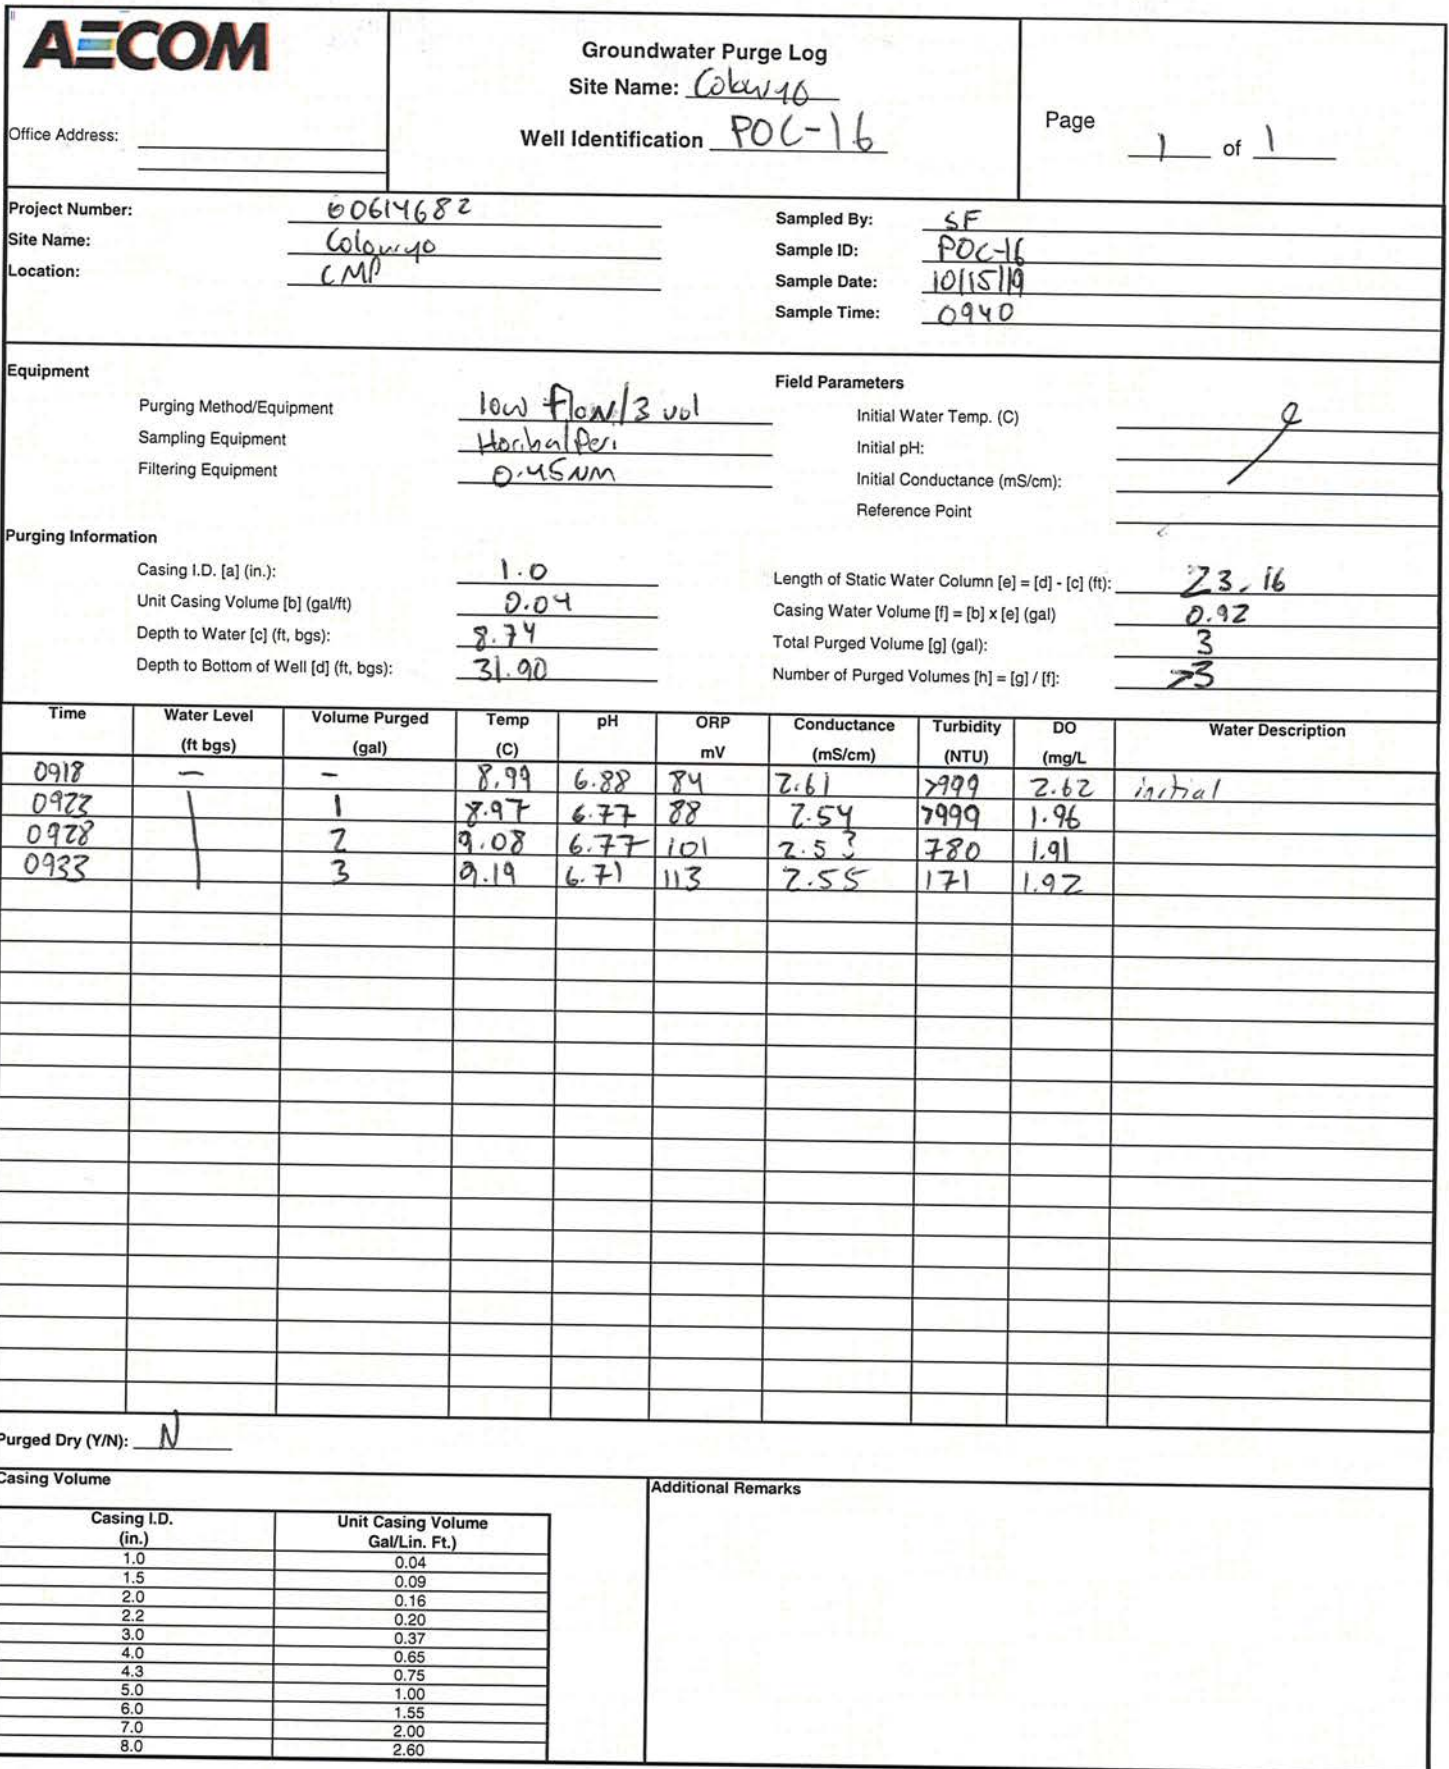 AECOM
Groundwater Purge Log
Site Name: Colowyo
Well Identification POC-16
Page 1 of 1
Office Address:
Project Number: 60614682
Site Name: Colowyo
Location: CMP
Sampled By: SF
Sample ID: POC-16
Sample Date: 10/15/19
Sample Time: 0940
Equipment
Purging Method/Equipment low flow/3 vol
Sampling Equipment Horiba/Peri
Filtering Equipment 0.45NM
Field Parameters
Initial Water Temp. (C)
Initial pH:
Initial Conductance (mS/cm):
Reference Point
Purging Information
Casing I.D. [a] (in.): 1.0
Unit Casing Volume [b] (gal/ft) 0.04
Depth to Water [c] (ft, bgs): 8.74
Depth to Bottom of Well [d] (ft, bgs): 31.90
Length of Static Water Column [e] = [d] - [c] (ft): 23.16
Casing Water Volume [f] = [b] x [e] (gal) 0.92
Total Purged Volume [g] (gal): 3
Number of Purged Volumes [h] = [g] / [f]: >3
Time Water Level (ft bgs) Volume Purged (gal) Temp (C) pH ORP mV Conductance (mS/cm) Turbidity (NTU) DO (mg/L Water Description
0918 – – 8.99 6.88 84 2.61 >999 2.62 initial
0923 1 8.97 6.77 88 2.54 >999 1.96
0928 2 9.08 6.77 101 2.53 780 1.91
0933 3 9.19 6.71 113 2.55 171 1.92
Purged Dry (Y/N): N
Casing Volume
Casing I.D. (in.) Unit Casing Volume Gal/Lin. Ft.)
1.0 0.04
1.5 0.09
2.0 0.16
2.2 0.20
3.0 0.37
4.0 0.65
4.3 0.75
5.0 1.00
6.0 1.55
7.0 2.00
8.0 2.60
Additional Remarks